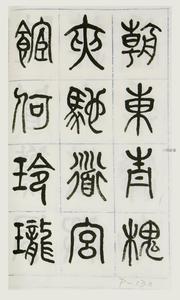 朝東青槐
夾馳道宮
館何玲瓏